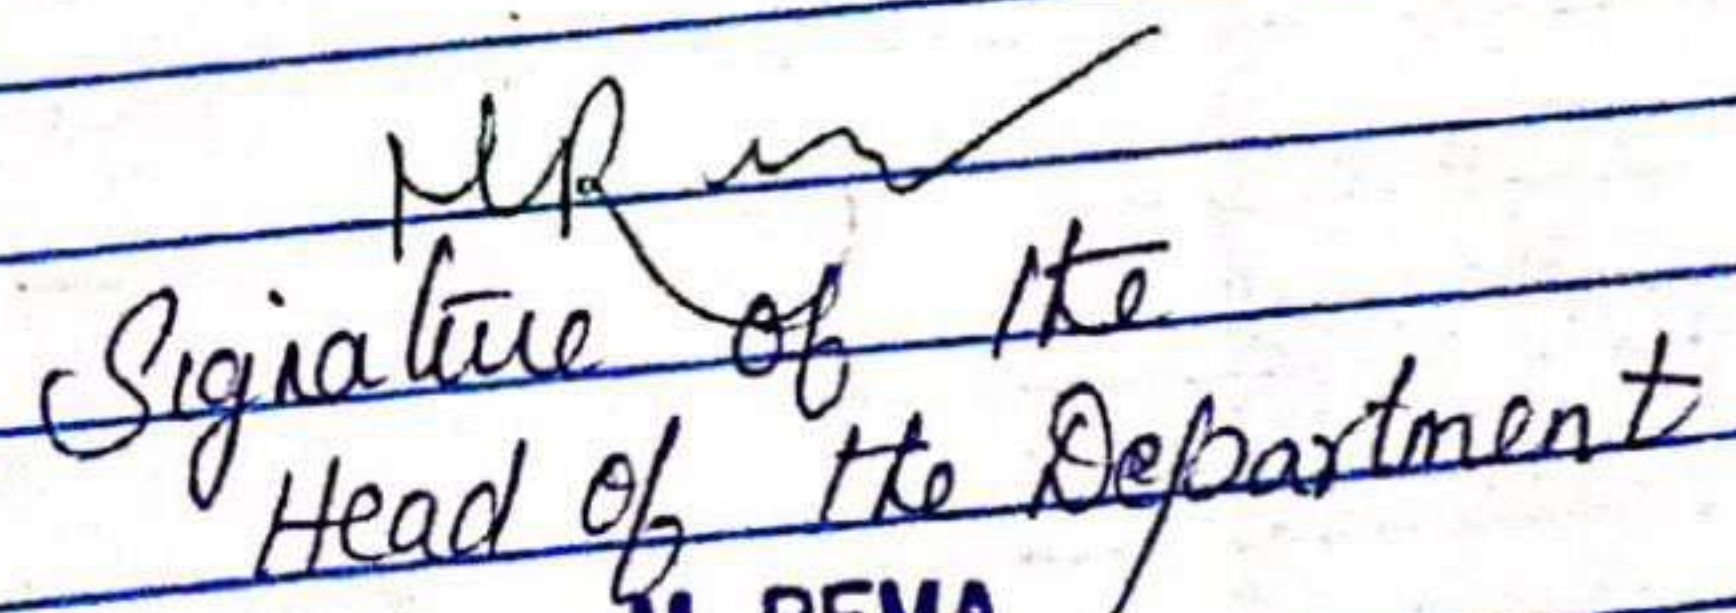 Signature of the
Head of the Department